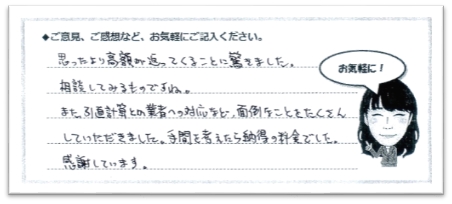 ◆ご意見、ご感想など、お気軽にご記入ください。
思ったより高額が返ってくることに驚きました。
お気軽に！
相談してみるものですね。
また、引直計算との業者への対応など、面倒なことをたくさん
していただきました。手間を考えたら納得の料金でした。
感謝しています。